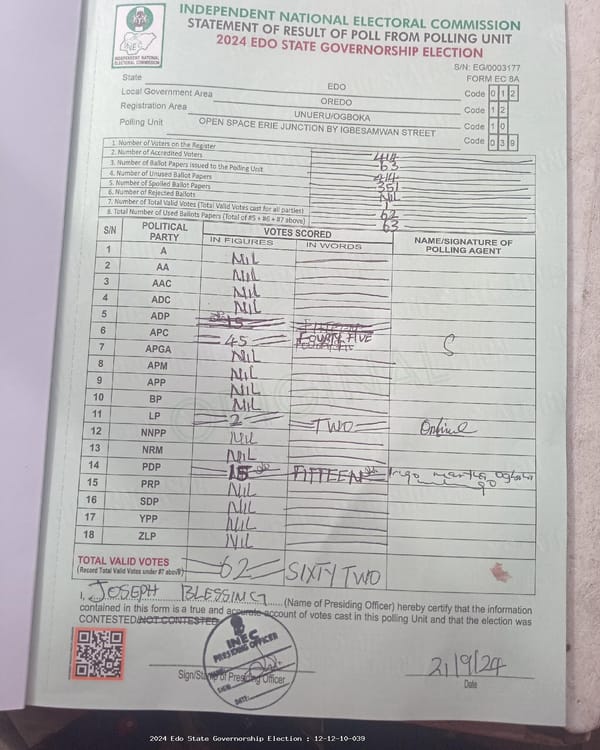 INDEPENDENT NATIONAL ELECTORAL COMMISSION
STATEMENT OF RESULT OF POLL FROM POLLING UNIT
2024 EDO STATE GOVERNORSHIP ELECTION
INEC
INDEPENDENT NATIONAL ELECTORAL COMMISSION
S/N: EG/0003177
FORM EC 8A
State EDO Code 0 1 2
Local Government Area OREDO Code 1 2
Registration Area UNUERU/OGBOKA Code 1 0
Polling Unit OPEN SPACE ERIE JUNCTION BY IGBESAMWAN STREET Code 0 3 9
1. Number of Voters on the Register 414
2. Number of Accredited Voters 63
3. Number of Ballot Papers issued to the Polling Unit 414
4. Number of Unused Ballot Papers 351
5. Number of Spoiled Ballot Papers NIL
6. Number of Rejected Ballots 1
7. Number of Total Valid Votes (Total Valid Votes cast for all parties) 62
8. Total Number of Used Ballots Papers (Total of #5 + #6 + #7 above) 63
S/N POLITICAL PARTY VOTES SCORED NAME/SIGNATURE OF POLLING AGENT
IN FIGURES IN WORDS
1 A NIL
2 AA NIL
3 AAC NIL
4 ADC NIL
5 ADP
6 APC 45 FOURTY FIVE
7 APGA NIL
8 APM NIL
9 APP NIL
10 BP NIL
11 LP 2 TWO
12 NNPP NIL
13 NRM NIL
14 PDP 15 FIFTEEN
15 PRP NIL
16 SDP NIL
17 YPP NIL
18 ZLP NIL
TOTAL VALID VOTES 62 SIXTY TWO
(Record Total Valid Votes under #7 above)
I, JOSEPH BLESSING (Name of Presiding Officer) hereby certify that the information
contained in this form is a true and accurate account of votes cast in this polling Unit and that the election was
CONTESTED/NOT CONTESTED
INEC
PRESIDING OFFICER
SIGN:
DATE:
Sign/Stamp of Presiding Officer
21/9/24
Date
2024 Edo State Governorship Election : 12-12-10-039